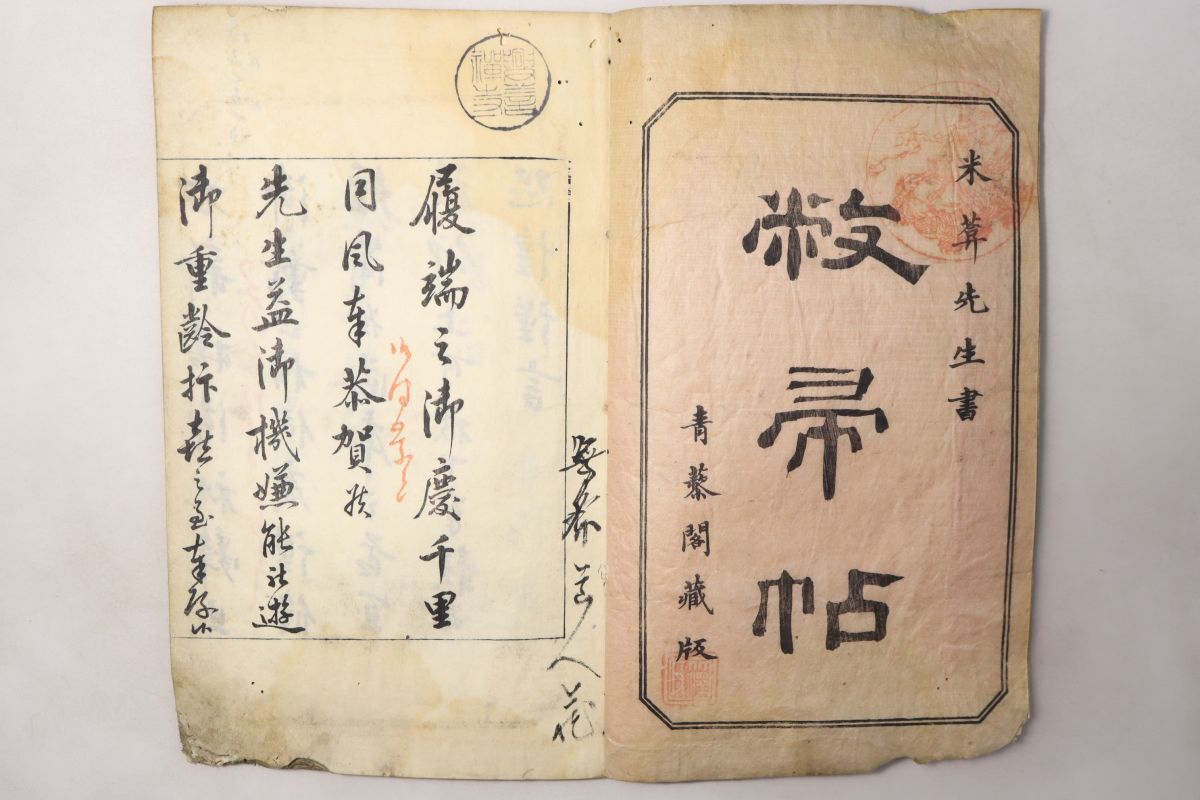 米葊先生書
敝帚帖
青藜閣藏版
履端之御慶千里
同風奉恭賀候
先生益御機嫌能被遊
御重齡抃喜之至奉存候